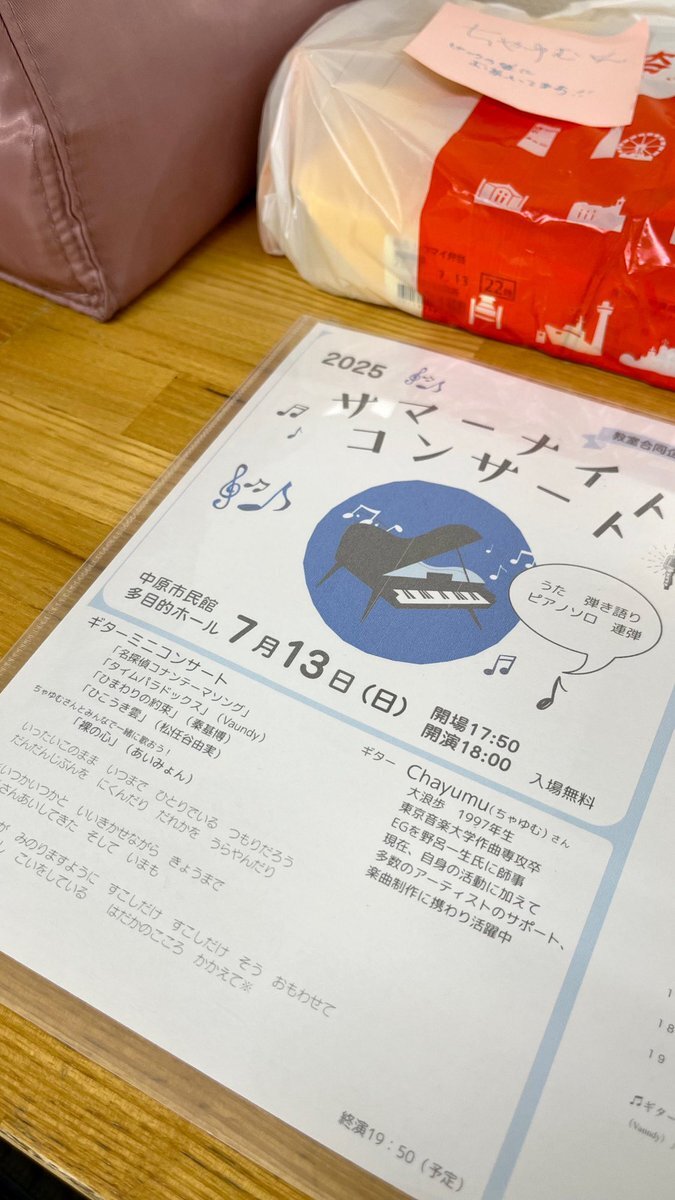 ちゃゆむ
マイ弁当
7.13
22時
2025
サマーナイト
コンサート
教室合同企
うた　弾き語り
ピアノソロ　連弾
中原市民館
多目的ホール
7月13日(日)
開場17:50
開演18:00
入場無料
ギターミニコンサート
「名探偵コナンテーマソング」
「タイムパラドックス」(Vaundy)
「ひまわりの約束」(秦基博)
「ひこうき雲」(松任谷由実)
ちゃゆむさんとみんなで一緒に歌おう！
「裸の心」(あいみょん)
いったいこのまま　いつまで　ひとりでいる　つもりだろう
だんだんじぶんを　にくんだり　だれかを　うらやんだり
いつかいつかと　いいきかせながら　きょうまで
さんあいしてきた　そして　いまも
が　みのりますように　すこしだけ　すこしだけ　そう　おもわせて
し　こいをしている　はだかのこころ　かかえて※
ギター　Chayumu(ちゃゆむ)さん
大浪歩　1997年生
東京音楽大学作曲専攻卒
EGを野呂一生氏に師事
現在、自身の活動に加えて
多数のアーティストのサポート、
楽曲制作に携わり活躍中
終演19：50(予定)
1
18
19
♫ギター
(Vaundy)